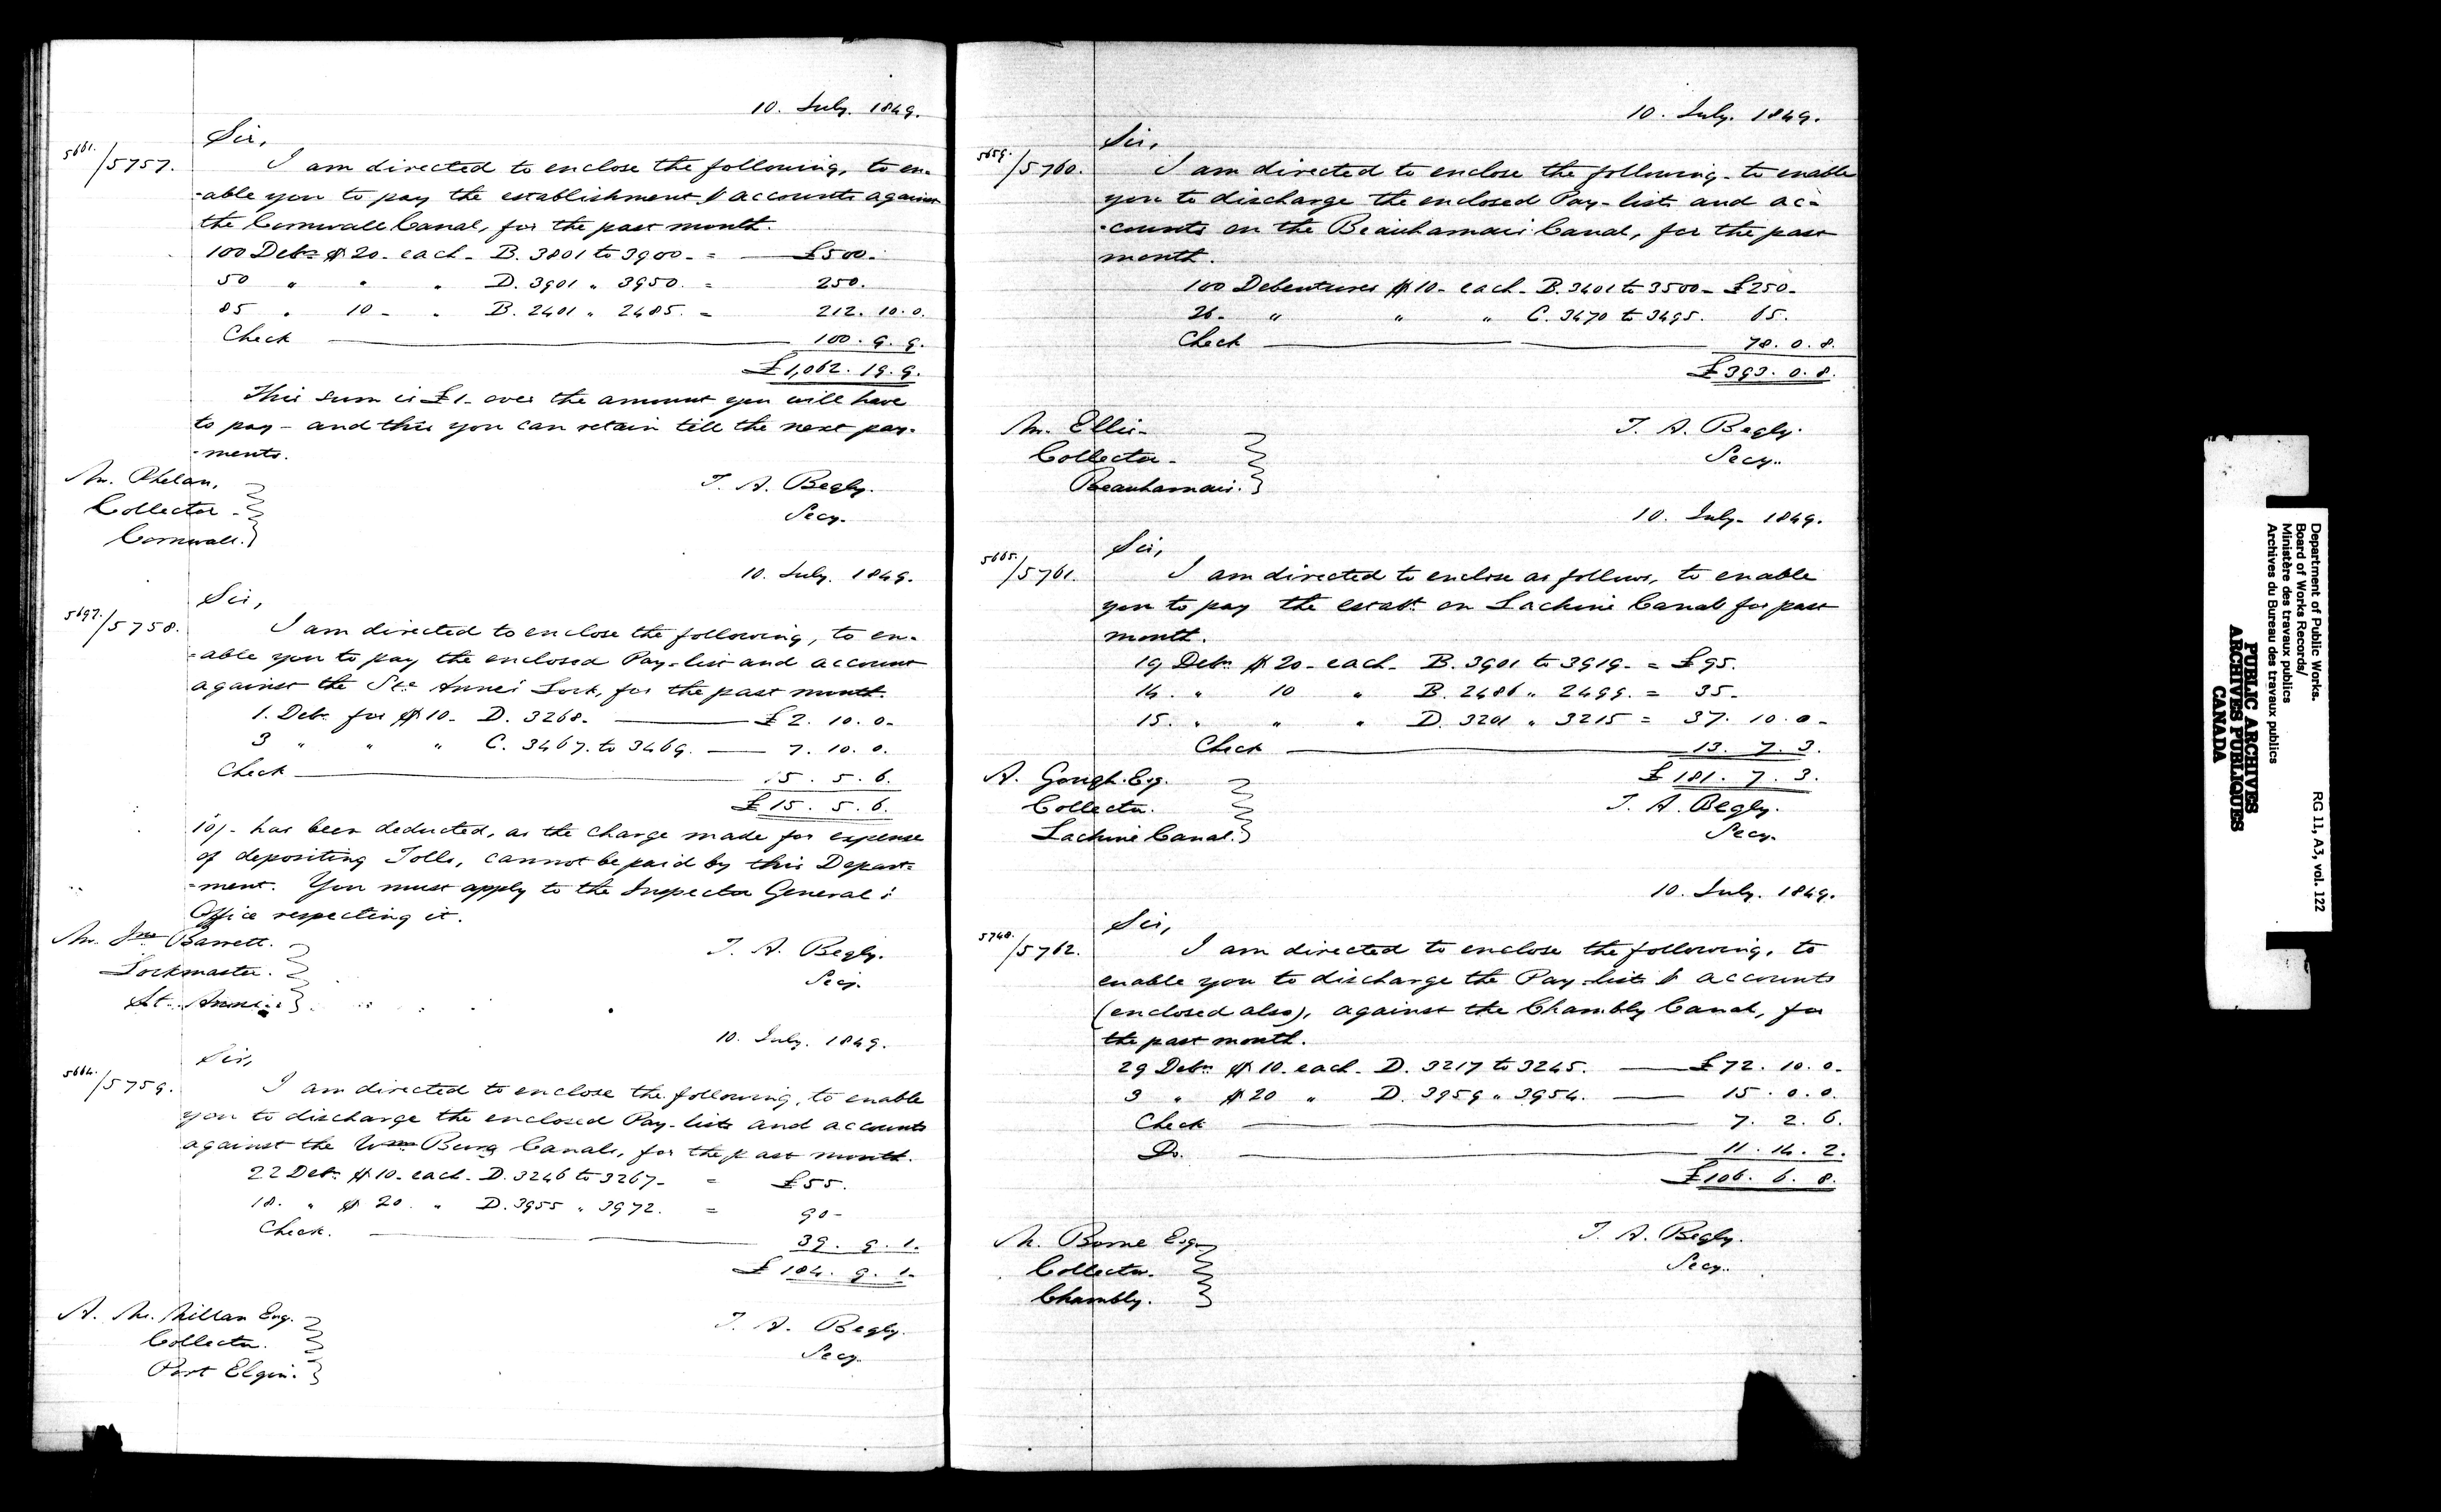 10. July. 1849.
Sir,
5661./5757. I am directed to enclose the following, to en-
-able you to pay the establishment & accounts against
the Cornwall Canal, for the past month.
100 Debs $20. each - B. 3801 to 3900 - = £500.
50 " " " D. 3901 " 3950. = 250.
85 " 10 - " B. 2401 " 2485. = 212. 10. 0.
Check 100. 9. 9.
£1,062. 19. 9.
This sum is £1 - over the amount you will have
to pay - and this you can retain till the next pay-
-ments.
Mr. Phelan,
Collector -
Cornwall.
T. A. Begly.
Secy.
10. July. 1849.
Sir,
5697./5758. I am directed to enclose the following, to en-
-able you to pay the enclosed Pay-list and account
against the Ste Anne's Lock, for the past month.
1. Deb. for $10 - D. 3268. £2. 10. 0.
3 " " " C. 3467. to 3469. 7. 10. 0.
Check 5. 5. 6.
£15. 5. 6.
10/- has been deducted, as the charge made for expense
of depositing Tolls, cannot be paid by this Depart-
-ment. You must apply to the Inspector General's
Office respecting it.
Mr. Jno Barrett.
Lockmaster.
St. Anne's
T. A. Begly.
Secy.
10. July. 1849.
Sir,
5664./5759. I am directed to enclose the following, to enable
you to discharge the enclosed Pay-lists and accounts
against the Wm. Burg Canals, for the past month.
22 Debs $10. each - D. 3246 to 3267 - = £55.
18. " $20. " D. 3955 " 3972. = 90 -
Check. 39. 9. 1.
£184. 9. 1.
A. McMillan Esq.
Collector.
Port Elgin.
T. A. Begly.
Secy.
10. July. 1849.
Sir,
5659./5760. I am directed to enclose the following - to enable
you to discharge the enclosed Pay-lists and ac-
-counts on the Beauharnais Canal, for the past
month.
100 Debentures $10 - each - B. 3401 to 3500 - £250 -
26 - " " " C. 3470 to 3495. 65.
Check 78. 0. 8.
£393. 0. 8.
Mr. Ellis -
Collector -
Beauharnais.
T. A. Begly.
Secy.
10. July - 1849.
Sir,
5665./5761. I am directed to enclose as follows, to enable
you to pay the estabt. on Lachine Canal for past
month.
19 Debs $20 - each - B. 3901 to 3919 - = £95.
14. " 10 " B. 2486 " 2499. = 35 -
15. " " " D. 3201 " 3215 = 37. 10. 0 -
Check 13. 7. 3.
£181. 7. 3.
A. Gough. Esq.
Collector.
Lachine Canal.
T. A. Begly.
Secy.
10. July. 1849.
Sir,
5748./5762. I am directed to enclose the following, to
enable you to discharge the Pay-lists & accounts
(enclosed also), against the Chambly Canal, for
the past month.
29 Debs $10. each - D. 3217 to 3245. £72. 10. 0 -
3 " $20 " D. 3959 " 3954. 15. 0. 0.
Check 7. 2. 6.
Do. 11. 14. 2.
£106. 6. 8.
M. Borne Esq
Collector.
Chambly.
T. A. Begly.
Secy.
Department of Public Works.
Board of Works Records/
Ministère des travaux publics
Archives du Bureau des travaux publics
RG 11, A3, vol. 122
PUBLIC ARCHIVES
ARCHIVES PUBLIQUES
CANADA